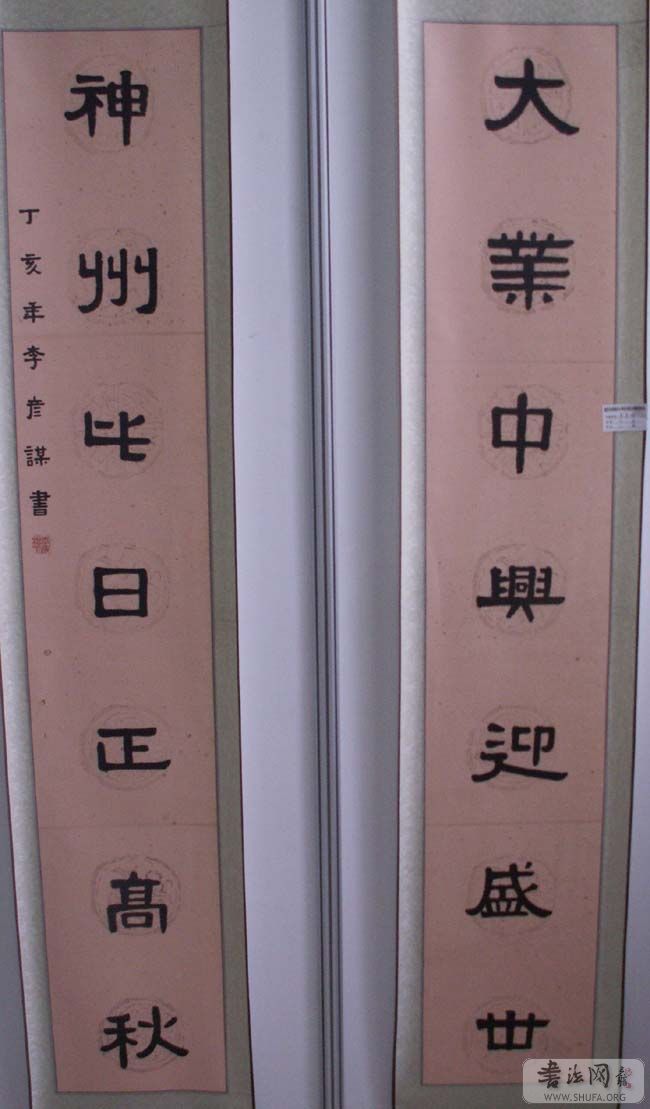 大業中興迎盛世
神州比日正高秋
丁亥年李彦謀書
書法网
WWW.SHUFA.ORG